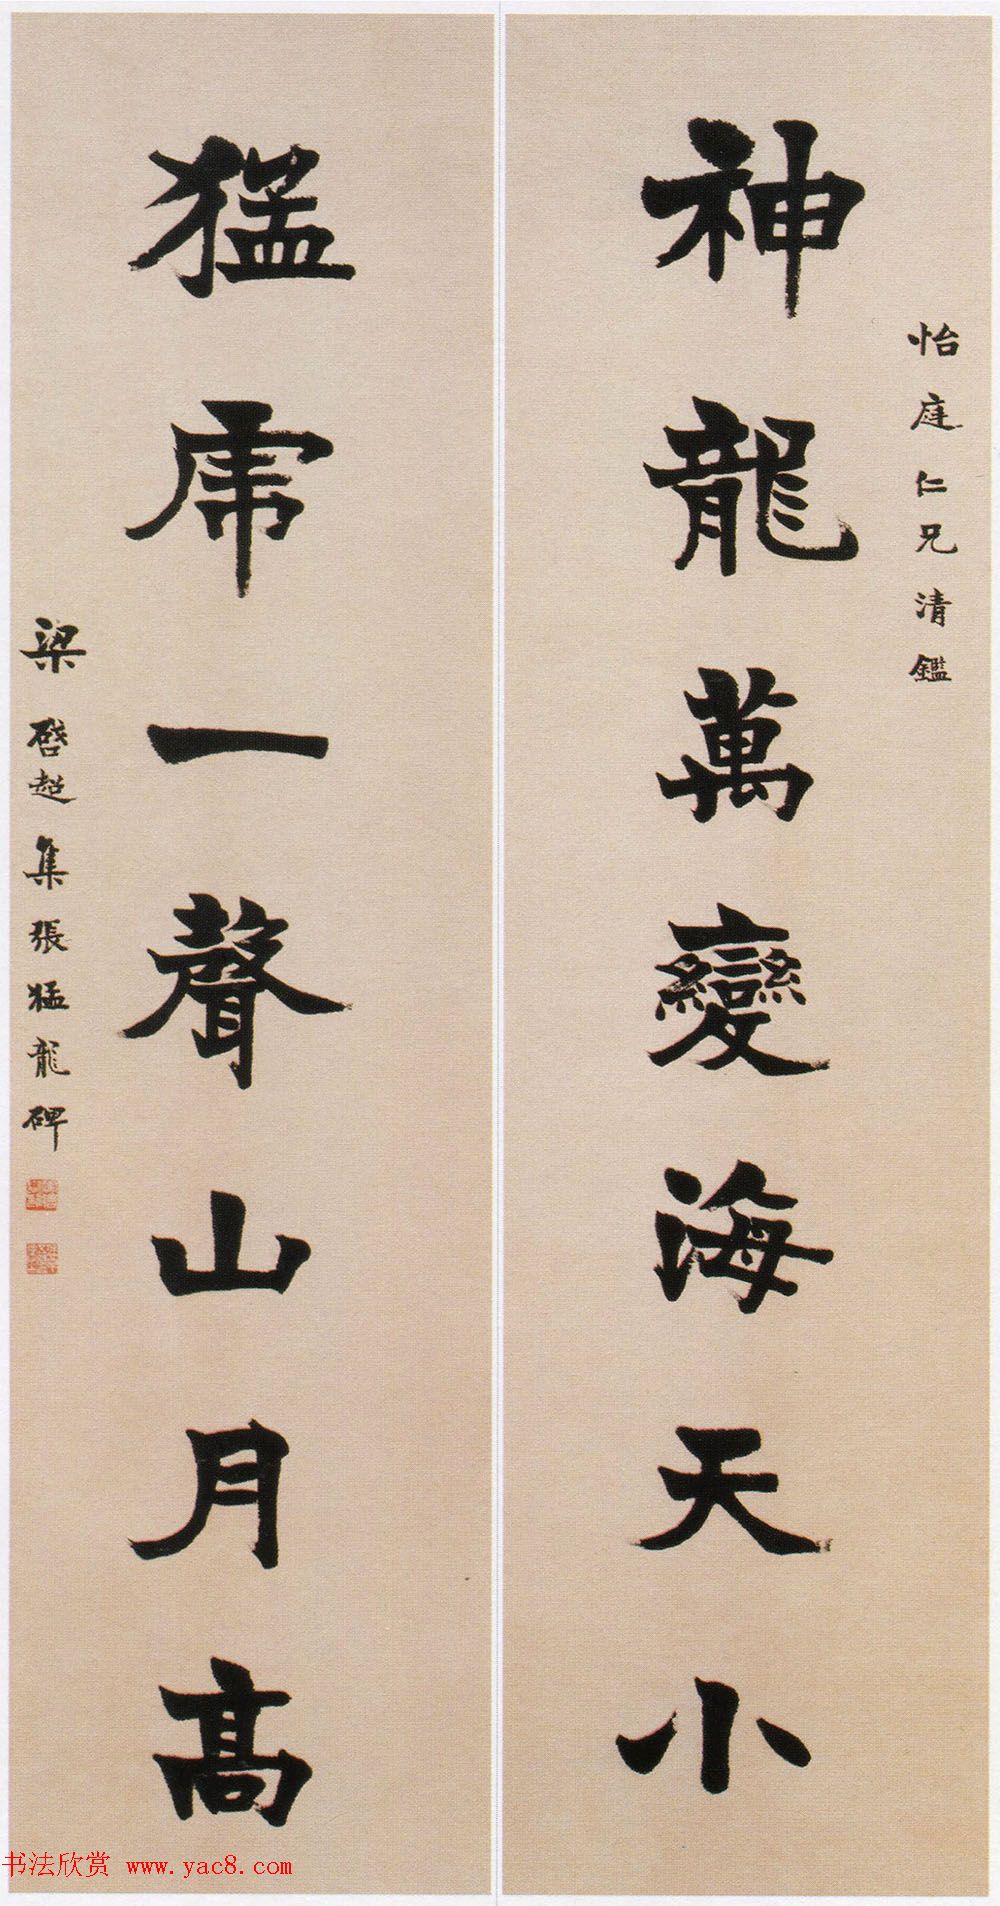 怡庭仁兄清鑑
神龍萬變海天小
猛虎一聲山月高
梁啓超集張猛龍碑
书法欣赏 www.yac8.com